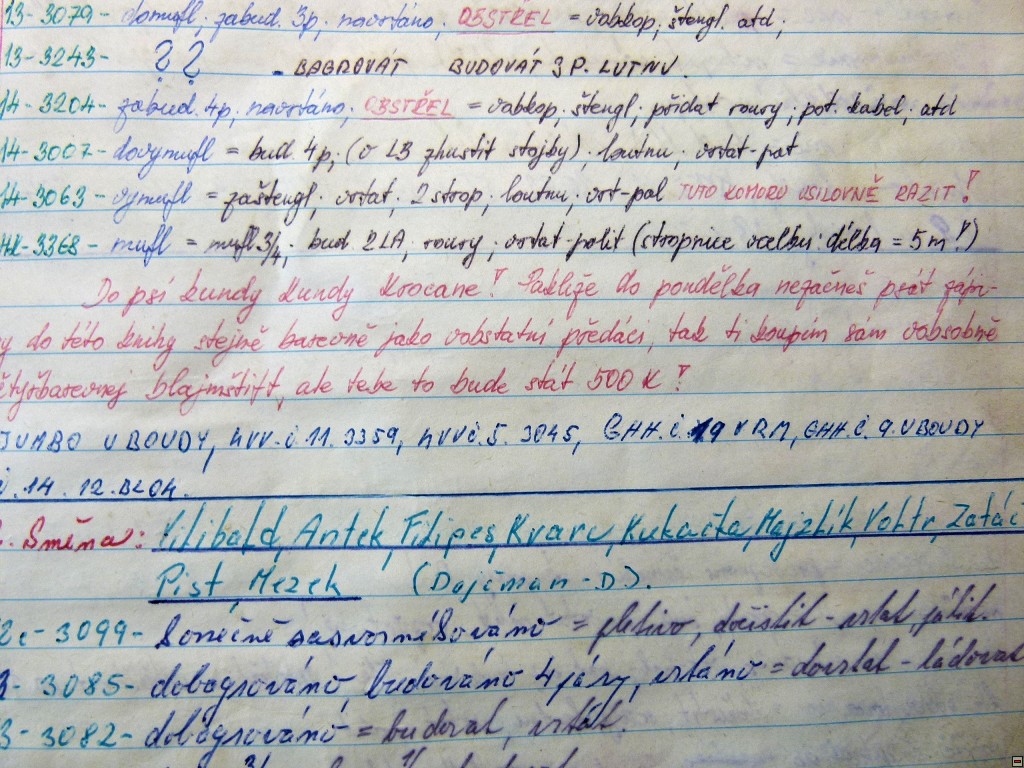 13-3079- domufl. zabud. 3p. navrtáno, OBSTŘEL = vabkop, štengl. atd.
13-3243- ?? - BAGROVÁT BUDOVÁT 3 P. LUTNU.
14-3204- zabud. 4p, navrtáno, OBSTŘEL = vabkop, štengl, přidat roury, pot. kabel, atd
14-3007- dovymufl = bud. 4p, (v L3 zhustit stojby), loutnu, vrtat-pat
14-3063- vymufl = zaštengl, vrtat, 2 strop, loutnu, vrt-pal TUTO KOMORU USILOVNĚ RAZIT!
3368- mufl = mufl 3/4, bud. 2LA, roury, vrtat-palit (stropnice vcelku: délka = 5m!)
Do psí kundy kundy Krocane! Pakliže do pondělka nezačneš psát zápi-
y do této knihy stejně barevně jako vobstatní předáci, tak ti koupím sám vobsobně
čtyřbarevnej blajmštift, ale tebe to bude stát 500 K!
JUMBO U BOUDY, č. 11. 3359, č. 5. 3045, GHH. č. 19 V RM, GHH. č. 9. U BOUDY
14. 12. BL04.
. Směna: Vilibald, Antek, Filipes, Kvarc, Kukačka, Majzlík, Vohtr, Zatáč
Pist, Mezek (Dajčman-D).
-3099- konečně zasvorníkováno = pletivo, dočistit - vrtat, pálit.
3085- dobagrováno, budováno 4 páry, vrtáno = dovrtat - ládovat
3-3082- dobagrováno = budovat, vrtát.